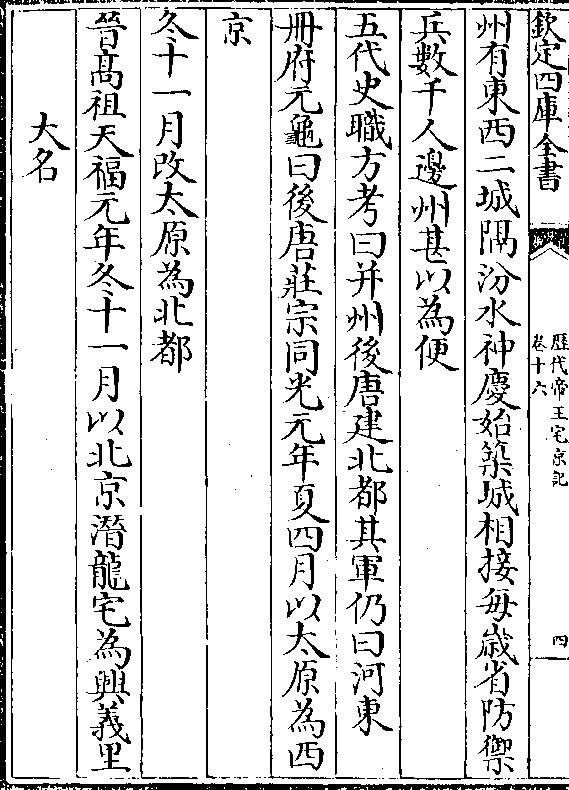 欽定四庫全書
歷代帝王宅京記
卷十六
四
州有東西二城隔汾水神慶始築城相接每歲省防禦
兵數千人邊州甚以為便
五代史職方考曰并州後唐建北都其軍仍曰河東
冊府元龜曰後唐莊宗同光元年夏四月以太原為西
京
冬十一月改太原為北都
晉高祖天福元年冬十一月以北京潛龍宅為興義里
大名